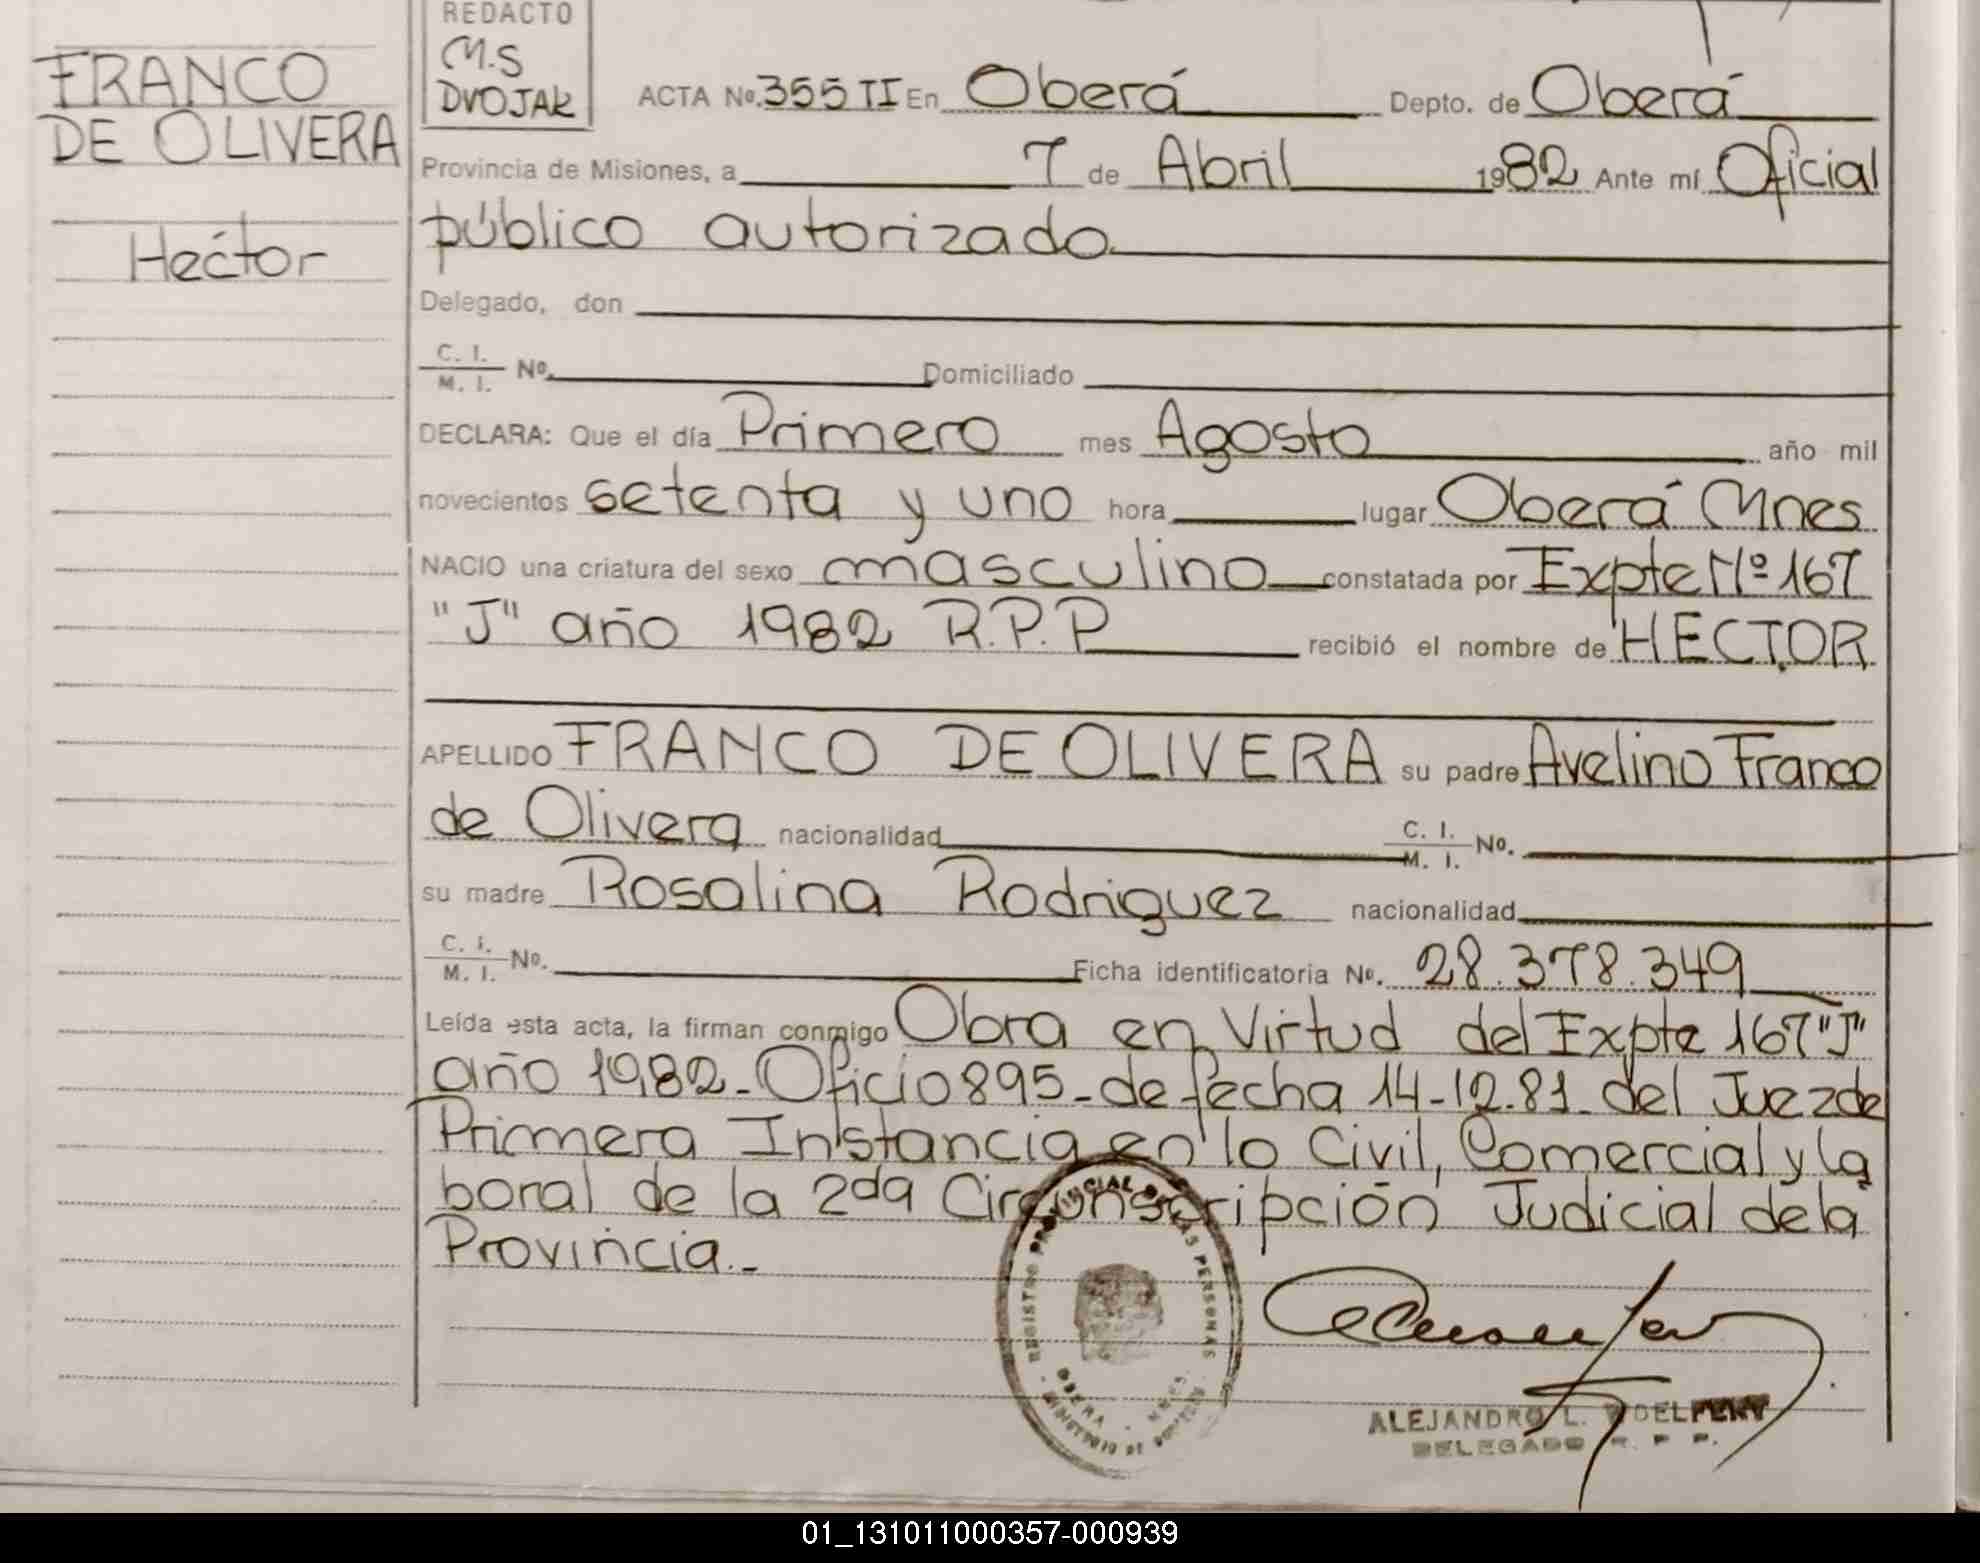 FRANCO
DE OLIVERA
Hector
REDACTO
M.S
DVOJAK
ACTA No. 355 II En Oberá Depto. de Oberá
Provincia de Misiones, a 7 de Abril 1982 Ante mí Oficial
público autorizado
Delegado, don
C. I.
M. I. No. Domiciliado
DECLARA: Que el día Primero mes Agosto año mil
novecientos setenta y uno hora lugar Oberá Mnes
NACIO una criatura del sexo masculino constatada por Expte Nº 167
"J" año 1982 R.P.P recibió el nombre de HECTOR
APELLIDO FRANCO DE OLIVERA su padre Avelino Franco
de Olivera nacionalidad C. I. M. I. No.
su madre Rosalina Rodriguez nacionalidad
C. I.
M. I. No. Ficha identificatoria No. 28.378.349
Leída esta acta, la firman conmigo Obra en Virtud del Expte 167 "J"
año 1982-Oficio 895-de fecha 14-12.81-del Juez de
Primera Instancia en lo Civil, Comercial y la
boral de la 2da Circunscripción Judicial de la
Provincia.-
REGISTRO PROVINCIAL DE LAS PERSONAS
OBERA - MNES.
ALEJANDRO L.
DELEGADO R. P. P.
01_131011000357-000939